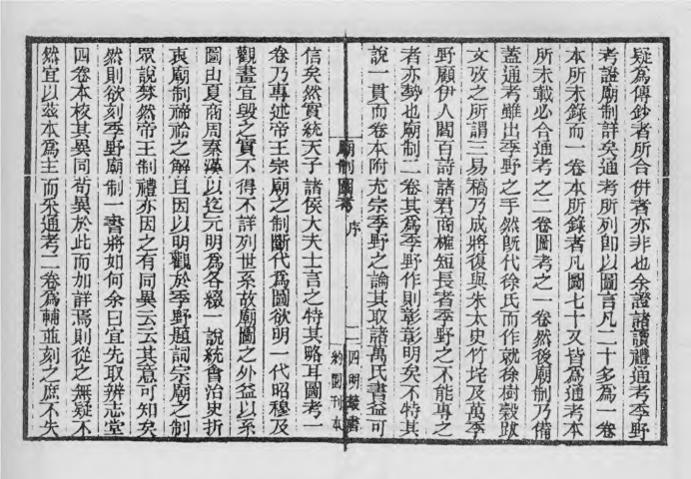 疑爲傳鈔者所合併者亦非也余證諸讀禮通考季野
考證廟制詳矣通考所列卽以圖言凡二十多爲一卷
本所未錄而一卷本所錄者凡圖七十又皆爲通考本
所未載必合通考之二卷圖考之一卷然後廟制乃備
蓋通考雖出季野之手然旣代徐氏而作就徐樹穀跋
文攷之所謂三易稿乃成將復與朱太史竹垞及萬季
野顧伊人閻百詩諸君商榷短長者季野之不能專之
者亦勢也廟制二卷其爲季野作則彰彰明矣不特其
說一貫而卷本附充宗季野之論其取諸萬氏書益可
廟制圖考 序 二 四明叢書 約園刊本
信矣然實統天子諸侯大夫士言之特其略耳圖考一
卷乃專述帝王宗廟之制斷代爲圖欲明一代昭穆及
觀畫宜毀之實不得不詳列世系故廟圖之外益以系
圖由夏商周秦漢以迄元明爲各綴一說統會治史折
衷廟制禘祫之解且因以明觀於季野題詞宗廟之制
眾說棼然帝王制禮亦因之有同異云云其意可知矣
然則欲刻季野廟制一書將如何余曰宜先取辨志堂
四卷本核其異同苟異於此而加詳焉則從之無疑不
然宜以茲本爲主而采通考二卷爲輔並刻之庶不失